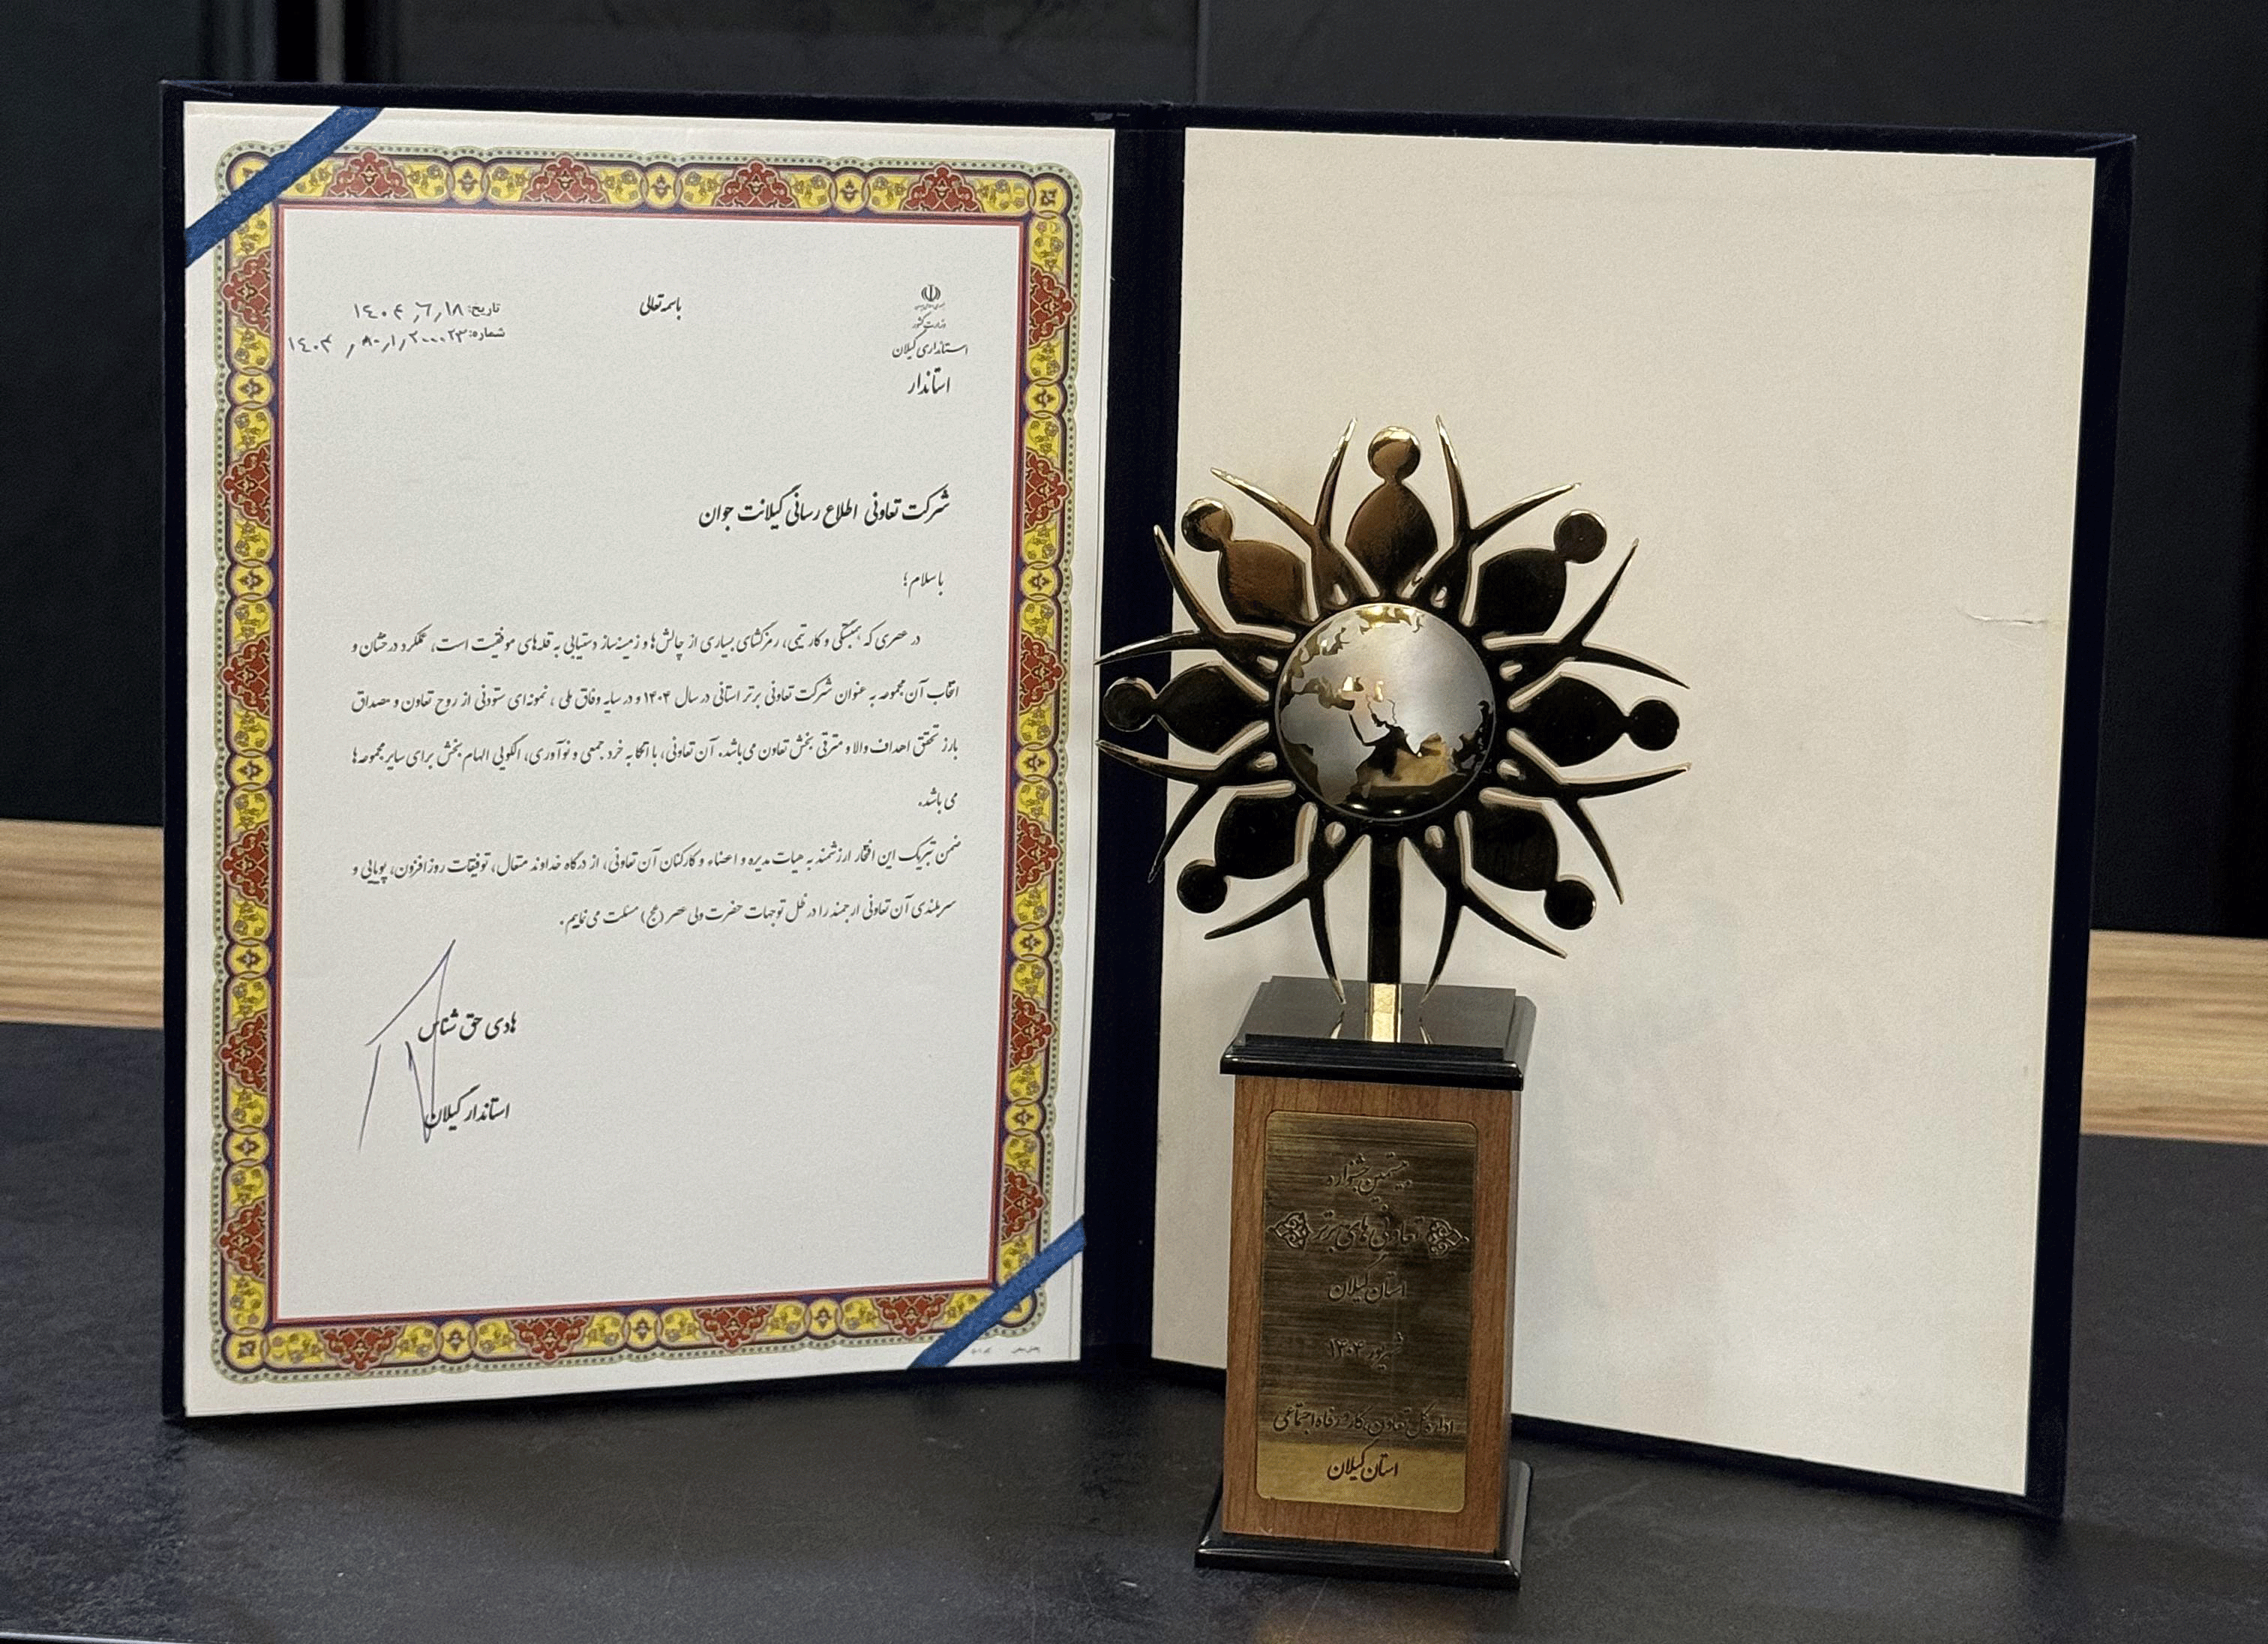 باسمه تعالی
تاریخ: ۱۴۰۴٫۶٫۱۸
شماره:
وزارت کشور
استانداری گیلان
استاندار
شرکت تعاونی اطلاع رسانی گیلانت جوان
با سلام؛
در عصری که همبستگی و کار تیمی، رمزگشای بسیاری از چالش‌ها و زمینه‌ساز دستیابی به قله‌های موفقیت است، عملکرد درخشان و
انتخاب آن مجموعه به عنوان شرکت تعاونی برتر استانی در سال ۱۴۰۴ و در سایه وفاق ملی، نمونه‌ای ستودنی از روح تعاون و مصداق
بارز تحقق اهداف والا و مترقی بخش تعاون می‌باشد. آن تعاونی، با اتکا به خرد جمعی و نوآوری، الگویی الهام بخش برای سایر مجموعه‌ها
می باشد.
ضمن تبریک این افتخار ارزشمند به هیات مدیره و اعضاء و کارکنان آن تعاونی، از درگاه خداوند متعال، توفیقات روزافزون، پویایی و
سربلندی آن تعاونی ارجمند را در ظل توجهات حضرت ولی عصر (عج) مسئلت می نمایم.
هادی حق شناس
استاندار گیلان
بیستمین جشنواره
تعاونی های برتر
استان گیلان
شهریور ۱۴۰۴
اداره کل تعاون، کار و رفاه اجتماعی
استان گیلان